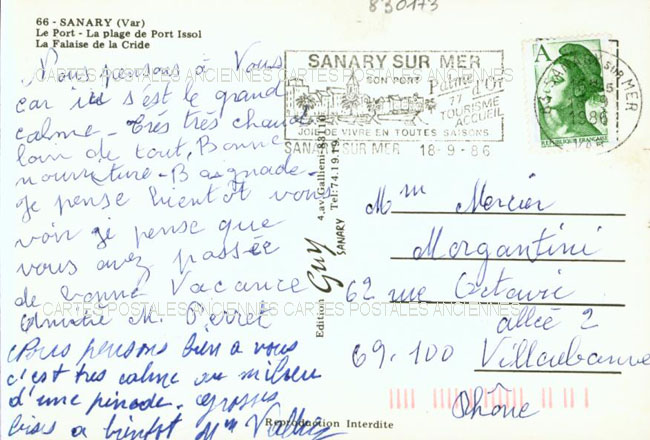 830173
66 - SANARY (Var)
Le Port - La plage de Port Issol
La Falaise de la Cride
Nous pensons à Vous
car ici s'est le grand
calme - Très très chaud
loin de tout. Bonne
nourriture - Baignade -
Je pense bientôt vous
voir je pense que
vous avez passée
de bonne Vacance
Amitié M. Perret
Nous pensons bien a vous
c'est tres calme au milieu
d'une pinede. grosses
bises a bientot Mme
SANARY SUR MER
SON PORT
Palme d'Or
77
TOURISME
ACCUEIL
JOIE DE VIVRE EN TOUTES SAISONS
SANARY SUR MER 18-9-86
A
REPUBLIQUE FRANÇAISE
SUR MER
1986
Edition Guy SANARY
4, av. Gallieni 83110
Tel: 74.19.19
Mme Mercier
Morgantini
62 rue Octavie
allée 2
69-100 Villeurbanne
Rhône
Reproduction Interdite
CARTES POSTALES ANCIENNES CARTES POSTALES ANCIENNES
CARTES POSTALES ANCIENNES CARTES POSTALES ANCIENNES